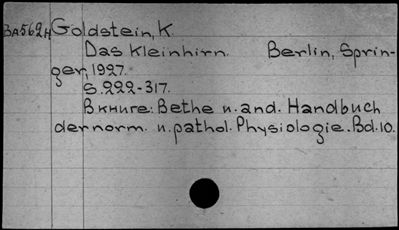 ВА562Н Goldstein, K.
Das Kleinhirn. Berlin, Sprin-
ger, 1927.
S. 222-317.
В книге: Bethe u. and. Handbuch
der norm. u. pathol. Physiologie. Bd. 10.